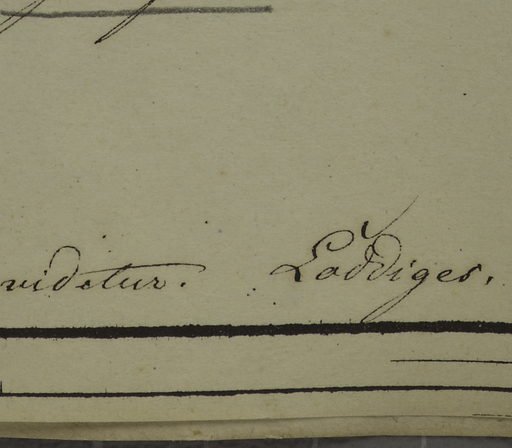 videtur. Loddiges.